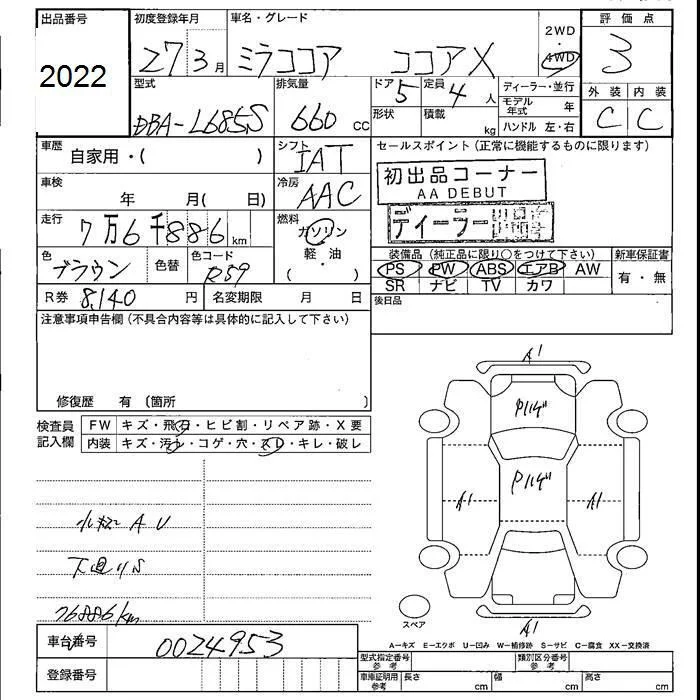 出品番号
2022
初度登録年月
27 3月
車名・グレード
ミラココア ココアX
2WD
・
4WD
評価点
3
型式
DBA-L685S
排気量
660 cc
ドア 5
定員 4人
形状
積載 kg
ディーラー・並行
モデル年式 年
ハンドル 左・右
外装 内装
C C
車歴
自家用・( )
シフト
IAT
セールスポイント(正常に機能するものに限ります)
初出品コーナー
AA DEBUT
ディーラー
車検
年 月( 日)
冷房
AAC
走行
7万6千886km
燃料
ガソリン
軽・油
( )
色
ブラウン
色替
色コード
R59
装備品(純正品に限り○をつけて下さい)
PS PW ABS エアB AW
SR ナビ TV カワ
新車保証書
有・無
R券 8,140 円
名変期限 月 日
後日品
注意事項申告欄(不具合内容等は具体的に記入して下さい)
修復歴 有 〔箇所 〕
検査員
記入欄
FW キズ・飛石・ヒビ割・リペア跡・X要
内装 キズ・汚レ・コゲ・穴・スレ・キレ・破レ
小キズ AU
下廻りS
76886km
A1
A1
A1
A1
スペア
A-キズ E-エクボ U-凹み W-補修跡 S-サビ C-腐食 XX-交換済
車台番号
0024953
登録番号
型式指定番号
参考
類別区分番号
参考
車庫証明用
参考
長さ cm
幅 cm
高さ cm